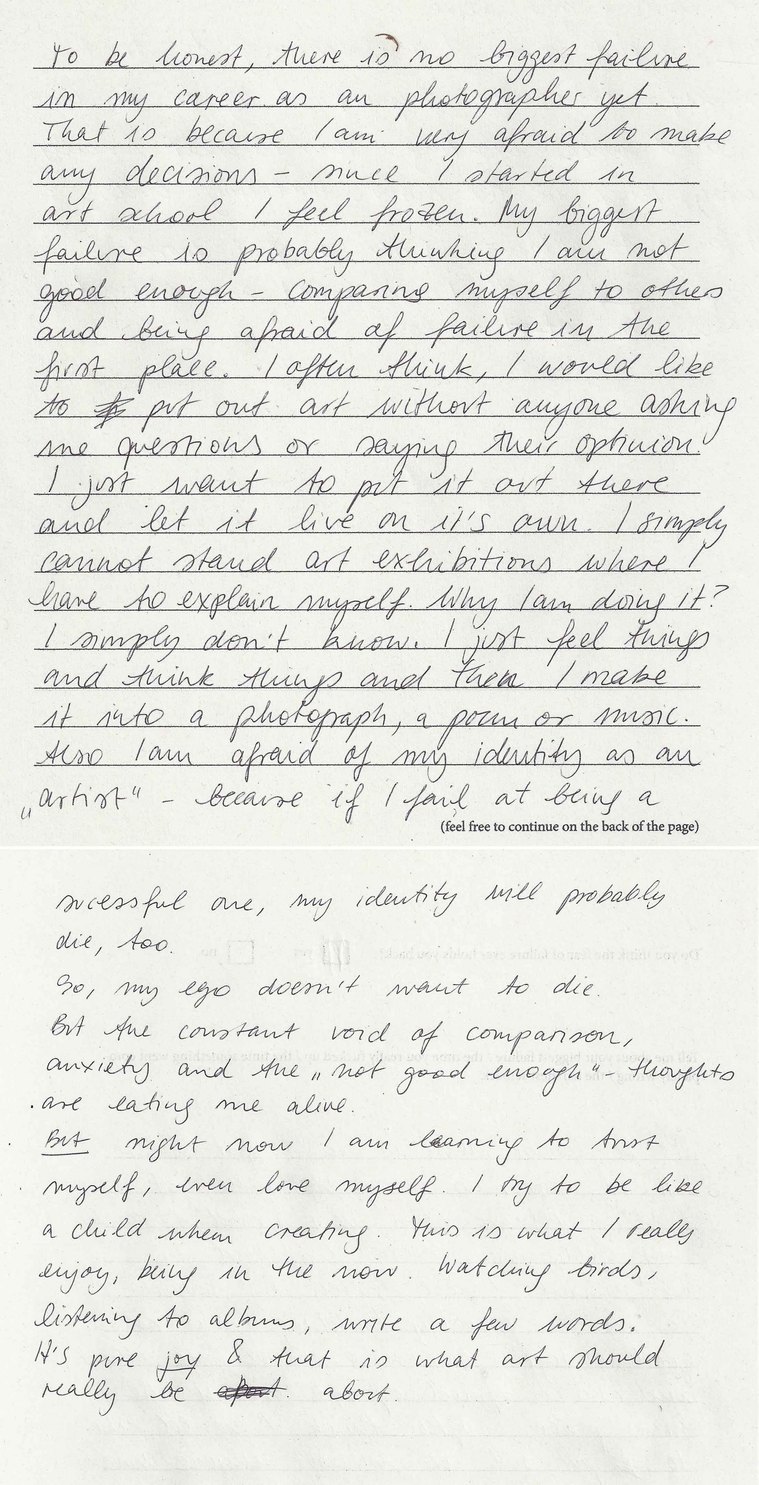 To be honest, there is no biggest failure
in my career as an photographer yet.
That is because I am very afraid to make
any decisions – since I started in
art school I feel frozen. My biggest
failure is probably thinking I am not
good enough – comparing myself to others
and being afraid of failure in the
first place. I often think, I would like
to put out art without anyone asking
me questions or saying their optinion.
I just want to put it out there
and let it live on it's own. I simply
cannot stand art exhibitions where I
have to explain myself. Why I am doing it?
I simply don't know. I just feel things
and think things and then I make
it into a photograph, a poem or music.
Also I am afraid of my identity as an
„artist“ – because if I fail at being a
(feel free to continue on the back of the page)
sucessful one, my identity will probably
die, too.
So, my ego doesn't want to die.
But the constant void of comparison,
anxiety and the „not good enough“ – thoughts
are eating me alive.
But right now I am learning to trust
myself, even love myself. I try to be like
a child when creating. This is what I really
enjoy, being in the now. Watching birds,
listening to albums, write a few words.
It's pure joy & that is what art should
really be about.